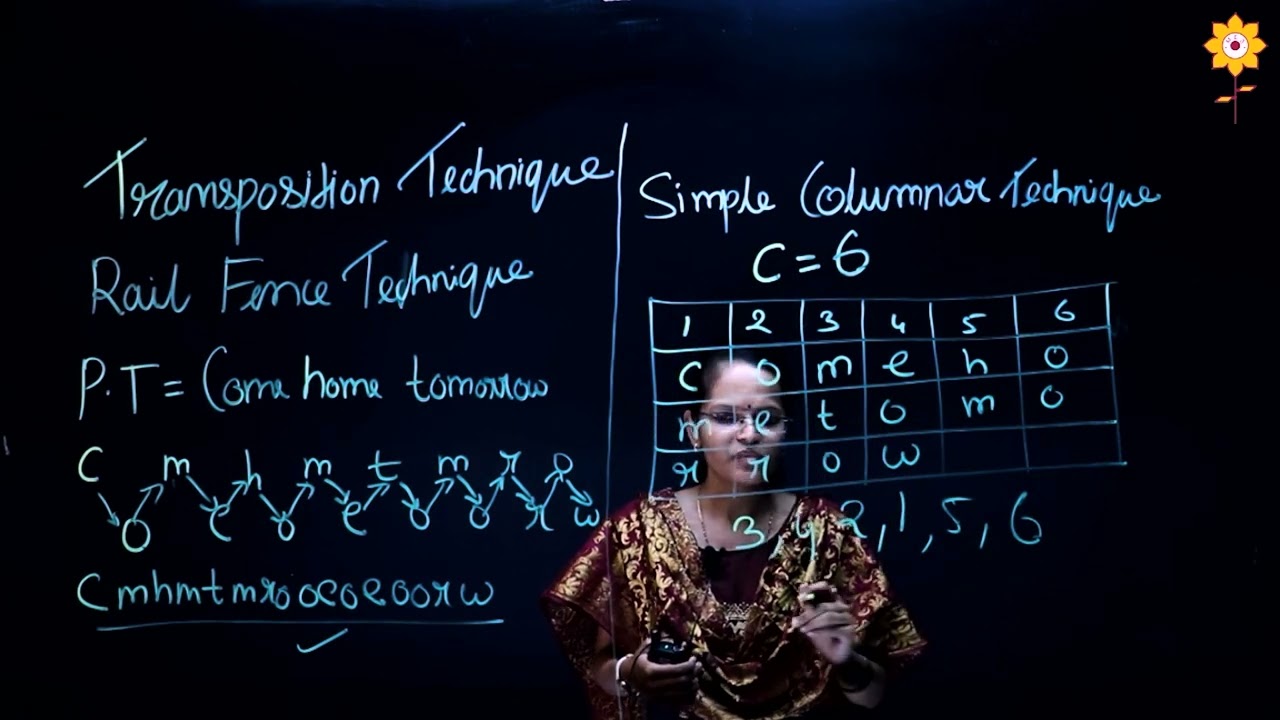 Transposition Technique
Rail Fence Technique
P.T = Come home tomorrow
C m h m t m r o
o e o e o o r w
Cmhmtmrooeoeoorw
Simple Columnar Technique
C = 6
1 2 3 4 5 6
C o m e h o
m e t o m o
r r o w
3, 4, 2, 1, 5, 6